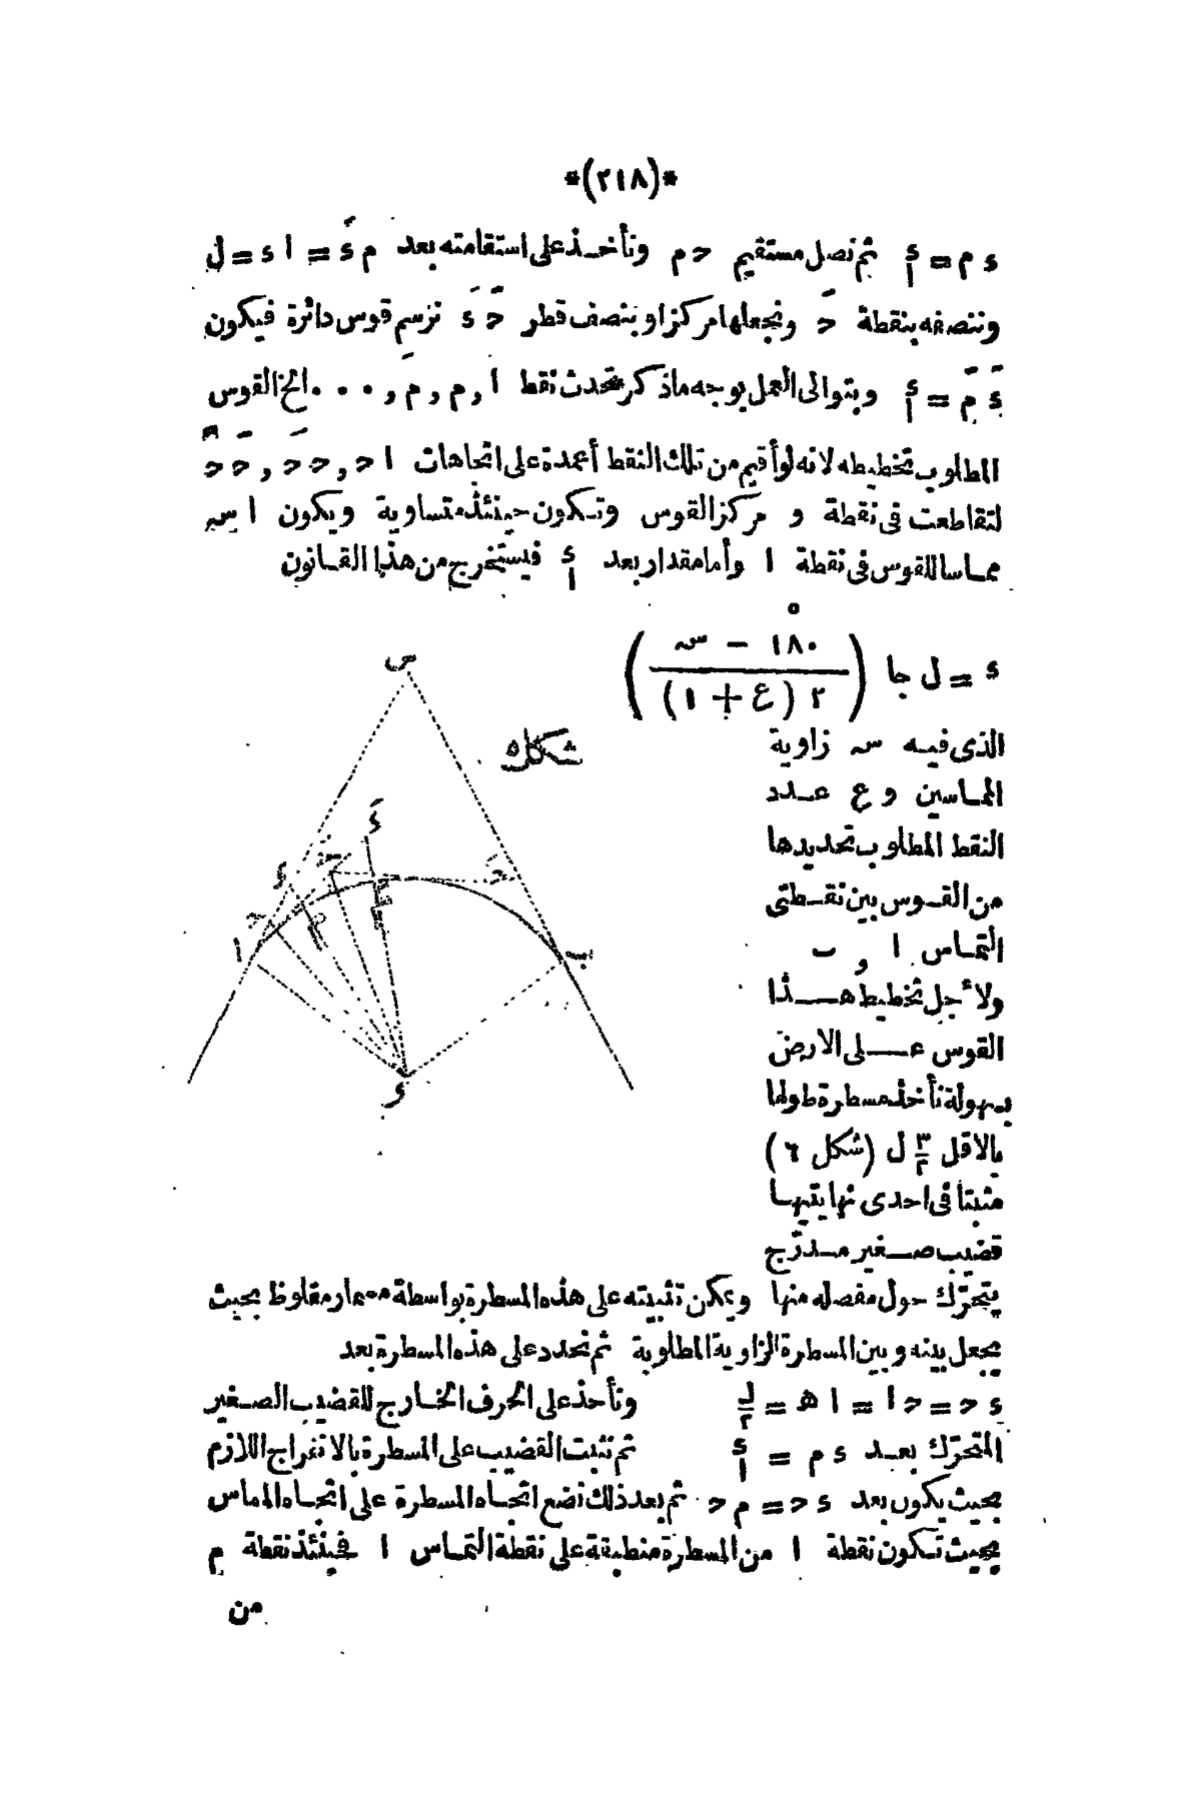 *(٢١٨)*
ء م = ء/١ ثم نصل مستقيم حـ م ونأخذ على استقامته بعد م ءَ = ا ء = ل
وننصفه بنقطة حـَ ونجعلها مركزا وبنصف قطر حـَ ءَ نرسم قوس دائرة فيكون
ءَ مَ = ء/١ وبتوالى العمل بوجه ماذكر تحدث نقط ا , م , مَ , ... الخ القوس
المطلوب تخطيطه لانه لو أقيم من تلك النقط أعمدة على اتجاهات ا حـ , حـ حـَ , حـَ حـً
لتقاطعت فى نقطة و مركز القوس وتكون حينئذ متساوية ويكون ا سـ
مماسا للقوس فى نقطة ا وأما مقدار بعد ء/١ فيستخرج من هذا القانون
ء = ل جا ( (١٨٠° - سـ) / ٢ (ع + ١) )
س
شكل ٥
الذى فيه سـ زاوية
المماسين و ع عدد
النقط المطلوب تحديدها
من القوس بين نقطتى
التماس ا و ب
ولأجل تخطيط هذا
القوس على الارض
بسهولة نأخذ مسطرة طولها
بالاقل ٣/٢ ل (شكل ٦)
مثبتا فى احدى نهايتيها
قضيب صغير مدرّج
يتحرّك حول مفصله منها ويمكن تثبيته على هذه المسطرة بواسطة مسمار مقلوظ بحيث
يجعل بينه وبين المسطرة الزاوية المطلوبة ثم نحدد على هذه المسطرة بعد
ء حـ = حـ ا = ا هـ = ل/٢ ونأخذ على الحرف الخارج للقضيب الصغير
المتحرّك بعد ء م = ء/١ ثم نثبت القضيب على المسطرة بالانفراج اللازم
بحيث يكون بعد ء حـ = م حـ ثم بعد ذلك نضع اتجاه المسطرة على اتجاه المماس
بحيث تكون نقطة ا من المسطرة منطبقة على نقطة التماس ا فحينئذ نقطة م
من